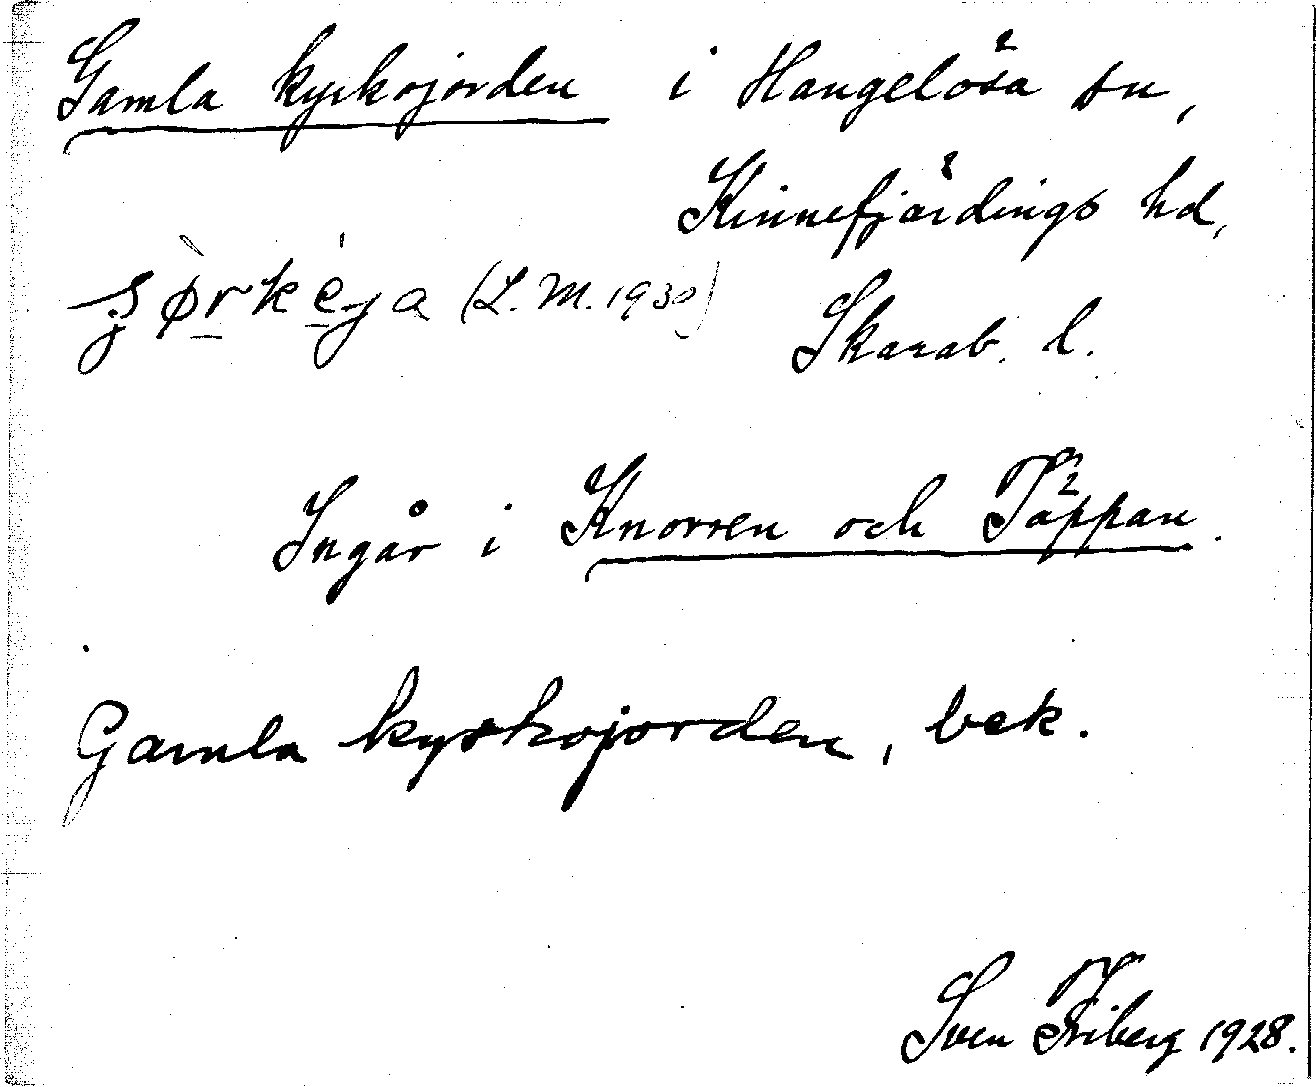 Gamla kyrkojorden i Hangelösa sn,
Kinnefjärdings hd,
(L. M. 1930) Skarab. l.
Ingår i Knorren och Täppan.
Gamla kyrkojorden, bek.
Sven Friberg 1928.